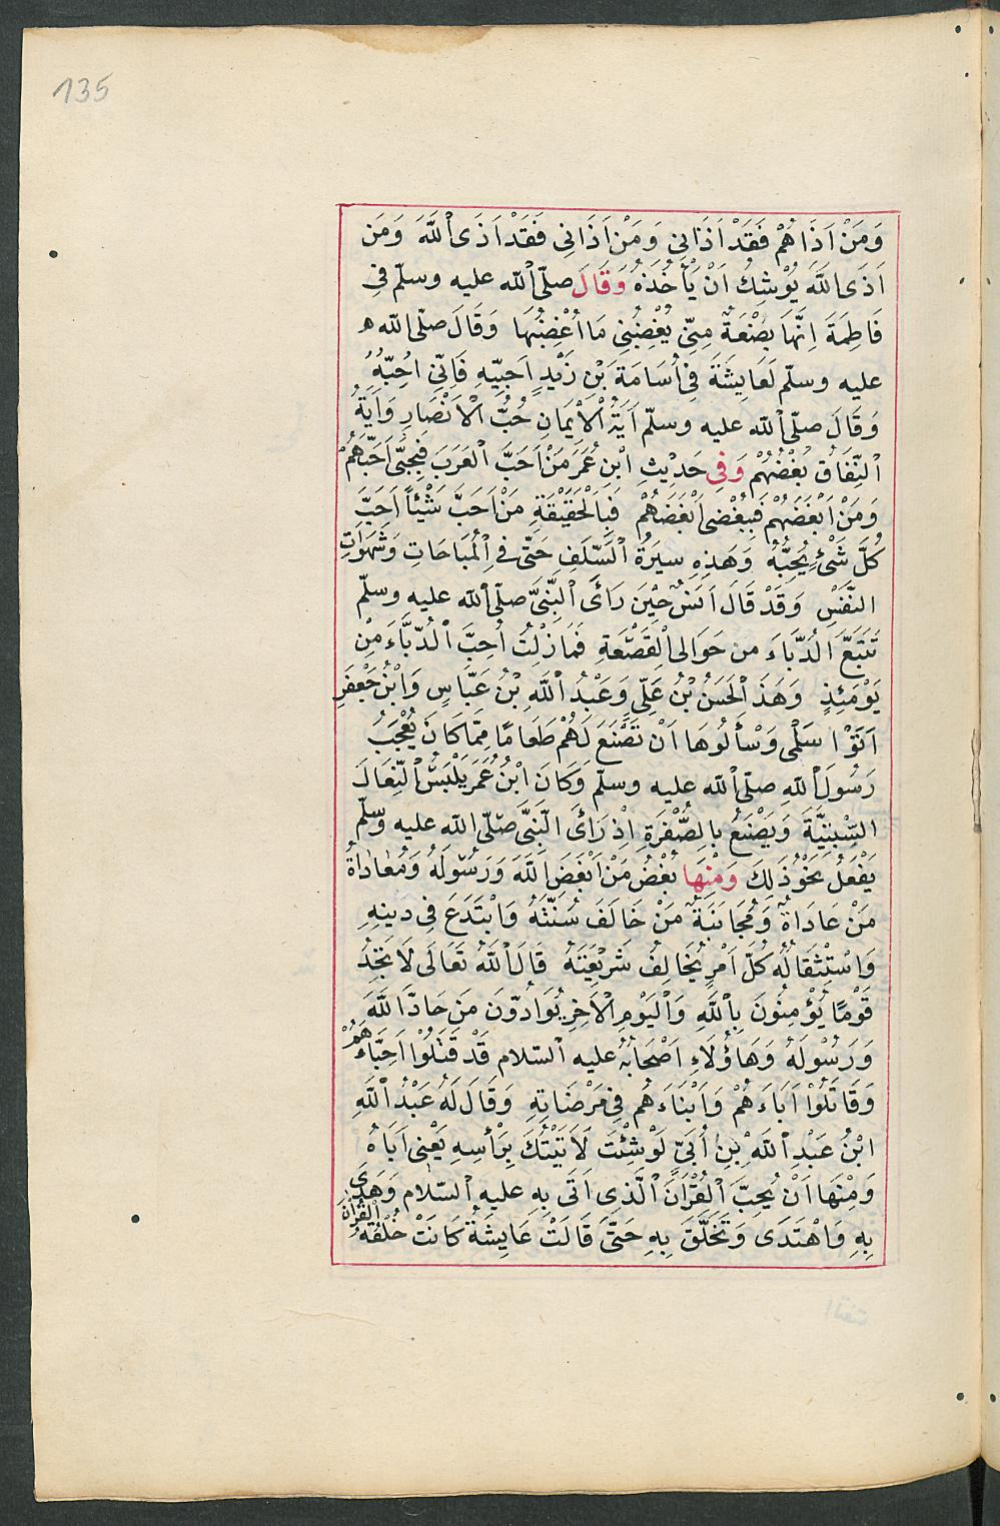 135
وَمَنْ اَذَاهُمْ فَقَدْ اَذَانِي وَمَنْ اَذَانِي فَقَدْ اَذَى اللّٰهَ وَمَن
اَذَى اللّٰهَ يُوْشِكُ اَنْ يَأْخُذَهُ وَقَالَ صلّى اللّٰه عليه وسلّم فِي
فَاطِمَةَ اِنَّهَا بِضْعَةٌ مِنّي يُغْضِبُنِي مَا اَغْضَبُهَا وَقَالَ صلّى اللّٰه ه
عليه وسلّم لعَايِشَةَ فِي اُسَامَةَ بْنِ زَيْدٍ اَحِبِّيهِ فَاِنِّي اُحِبُّهُ
وَقَالَ صلّى اللّٰه عليه وسلّم اَيَةُ الْاِيمَانِ حُبُّ الْاَنْصَارِ وَاَيَةُ
النِّفَاقُ بُغْضُهُمْ وَفِي حَدِيْثِ ابْنِ عُمَرَ مَنْ اَحَبَّ الْعَرَبَ فَبِحُبِّى اَحَبَّهُمْ
وَمَنْ اَبْغَضَهُمْ فَبِبُغْضِى اَبْغَضَهُمْ فَبِالْحَقِيْقَةِ مَنْ اَحَبَّ شَيْئًا اَحَبَّ
كُلَّ شَئٍ يُحِبُّهُ وَهَذِهِ سيرَةُ السَّلَفِ حَتّى فِى الْمُبَاحَاتِ وَشَهَوَاتِ
النَّفْسِ وَقَدْ قَالَ اَنَسٌ حِيْنَ رَاَى النَّبِيَّ صلّى اللّٰه عليه وسلّم
تَتَبَّعَ الدُّبَّاءَ من حَوَالى الْقَصْعَةِ فَمَا زِلْتُ اُحِبَّ الدُّبَّاءَ مِنْ
يَوْمَئِذٍ وَهَذَ الْحَسَنُ بْنُ عَلِيٍّ وَعَبْدُ اللّٰهِ بْنُ عَبَّاسٍ وَابْنُ جَعْفَرٍ
اَتَوْا سَلْمٰى وَسْأَلُوهَا اَنْ تَصْنَعَ لَهُمْ طَعَامًا مِمَّا كَانَ يُعْجِبُ
رَسُولَ اللّٰهِ صلّى اللّٰه عليه وسلّم وَكَانَ ابْنُ عُمَرَ يَلْبَسُ النِّعَالَ
السِّبْتِيَّةَ وَيَصْنَعُ بالصُّفْرَةِ اِذْ رَاَىَ النَّبِيَّ صَلّى اللّٰه عليه وسلّم
يَفْعَلُ نَحْوُ ذَلِكَ وَمِنْهَا بُغْضُ مَنْ اَبْغَضَ اللّٰهَ وَرَسُولَهُ وَمُعَادَاةُ
مَنْ عَادَاةُ وَمُجَانَبَةُ مَنْ خَالَفَ سُنَّتَهُ وَابْتَدَعَ فِى دينِهِ
وَاسْتِثْقَالُه كُلَّ اَمْرٍ يُخَالِفُ شَرِيْعَتَهُ قَالَ اللّٰهُ تَعَالَى لَا تَجِدُ
قَوْمًا يُؤْمِنُونَ بِاللّٰهِ وَالْيَوْمِ الْاٰخِرِ يُوَادُّوْنَ مَن حَادَّ اللّٰهَ
وَرَسُوْلَهُ وَهَاؤُلَاءِ اَصْحَابُهُ عليه السّلام قَدْ قَتَلُوْا اَحِبَّاءَهُمْ
وَقَاتَلُوْا اَبَاءَهُمْ وَاَبْنَاءَهُم فِى مَرْضَاتِهِ وَقَالَ لَهُ عَبْدُ اللّٰهِ
ابْنُ عَبْدِ اللّٰهِ بْنِ اُبَيٍّ لَوْ شِئْتَ لَاَتَيْتُكَ بِرَأْسِهِ يَعْنِى اَبَاهُ
وَمِنْهَا اَنْ يُحِبَّ الْقُرْاٰنَ الَّذِى اَتَى بِهِ عليه السّلام وَهَدَى
بِهِ وَاهْتَدَى وَتَخَلَّقَ بِهِ حَتَّى قَالَتْ عَايِشَةُ كَانَتْ خُلُقُهُ الْقُرْاٰنَ